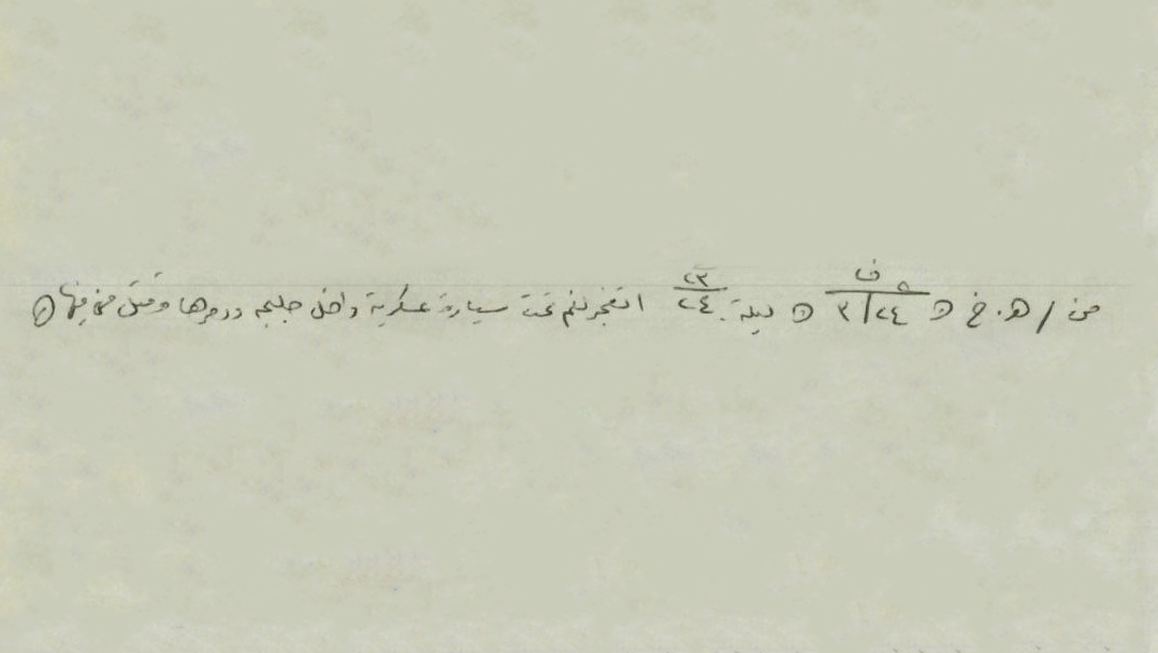 من / هـ. خ ⊙ ف ٥ ٢٤ / ٣ ⊙ ليلة ٢٣ / ٢٤ انفجر لغم تحت سيارة عسكرية داخل حلبجه ودمرها وقتل من فيها ⊙